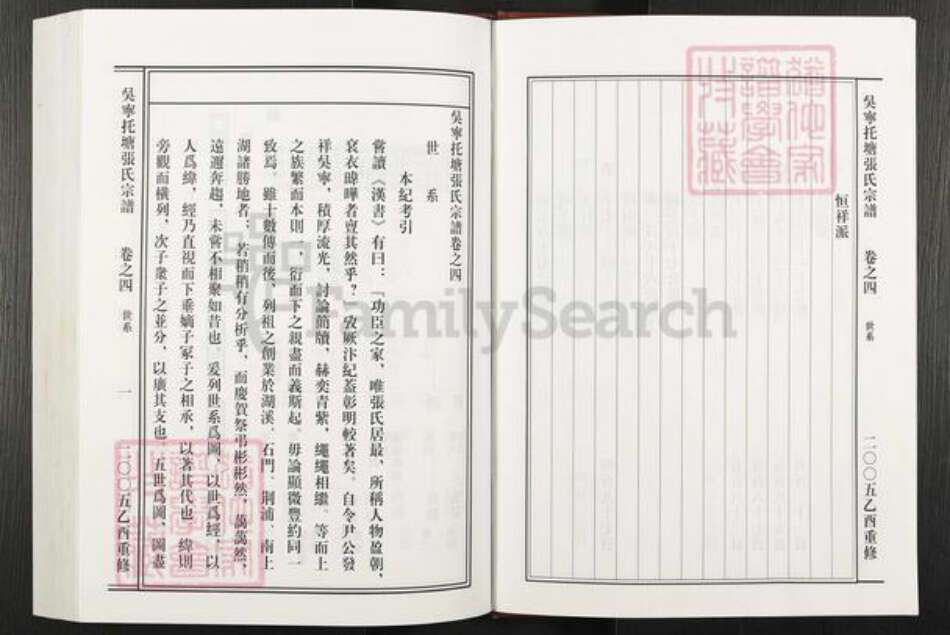 吳寧托塘張氏宗譜 卷之四 世系 二〇〇五乙酉重修
恒祥派
吳寧托塘張氏宗譜卷之四
世系
本紀考引
嘗讀《漢書》有曰：「功臣之家，唯張氏居最，所稱人物盈朝，
袞衣暐曄者亶其然乎？攷厥汴紀蓋彰明較著矣。自令尹公發
祥吳寧，積厚流光，討論簡牘，赫奕青紫，繩繩相繼。等而上
之族繁而本則一，衍而下之親盡而義斯起。毋論顯微豐約同一
致焉。雖十數傳而後、列祖之創業於湖溪、石門、荊浦、南上
湖諸勝地者；若稍稍有分析乎，而慶賀祭弔彬彬然，藹藹然，
遠邇奔趨，未嘗不相聚如昔也。爰列世系爲圖，以世爲經，以
人爲緯，經乃直視而下垂嫡子冢子之相承，以著其代也。緯則
旁觀而橫列，次子衆子之並分，以廣其支也。五世爲圖，圖盡
吳寧托塘張氏宗譜 卷之四 世系 一 二〇〇五乙酉重修
FamilySearch